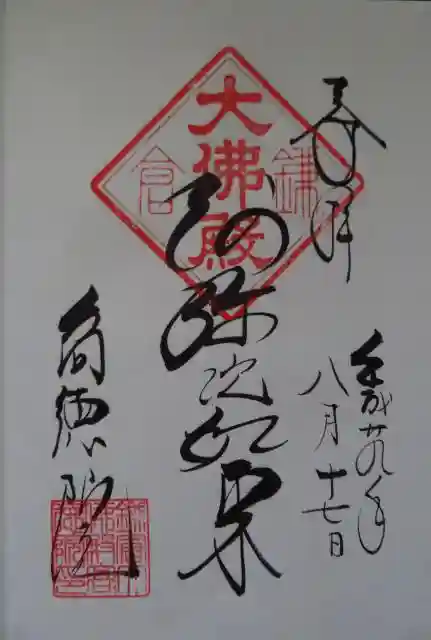 奉拝
平成廿九年
八月十七日
鎌倉
大佛殿
阿弥陀如来
高徳院